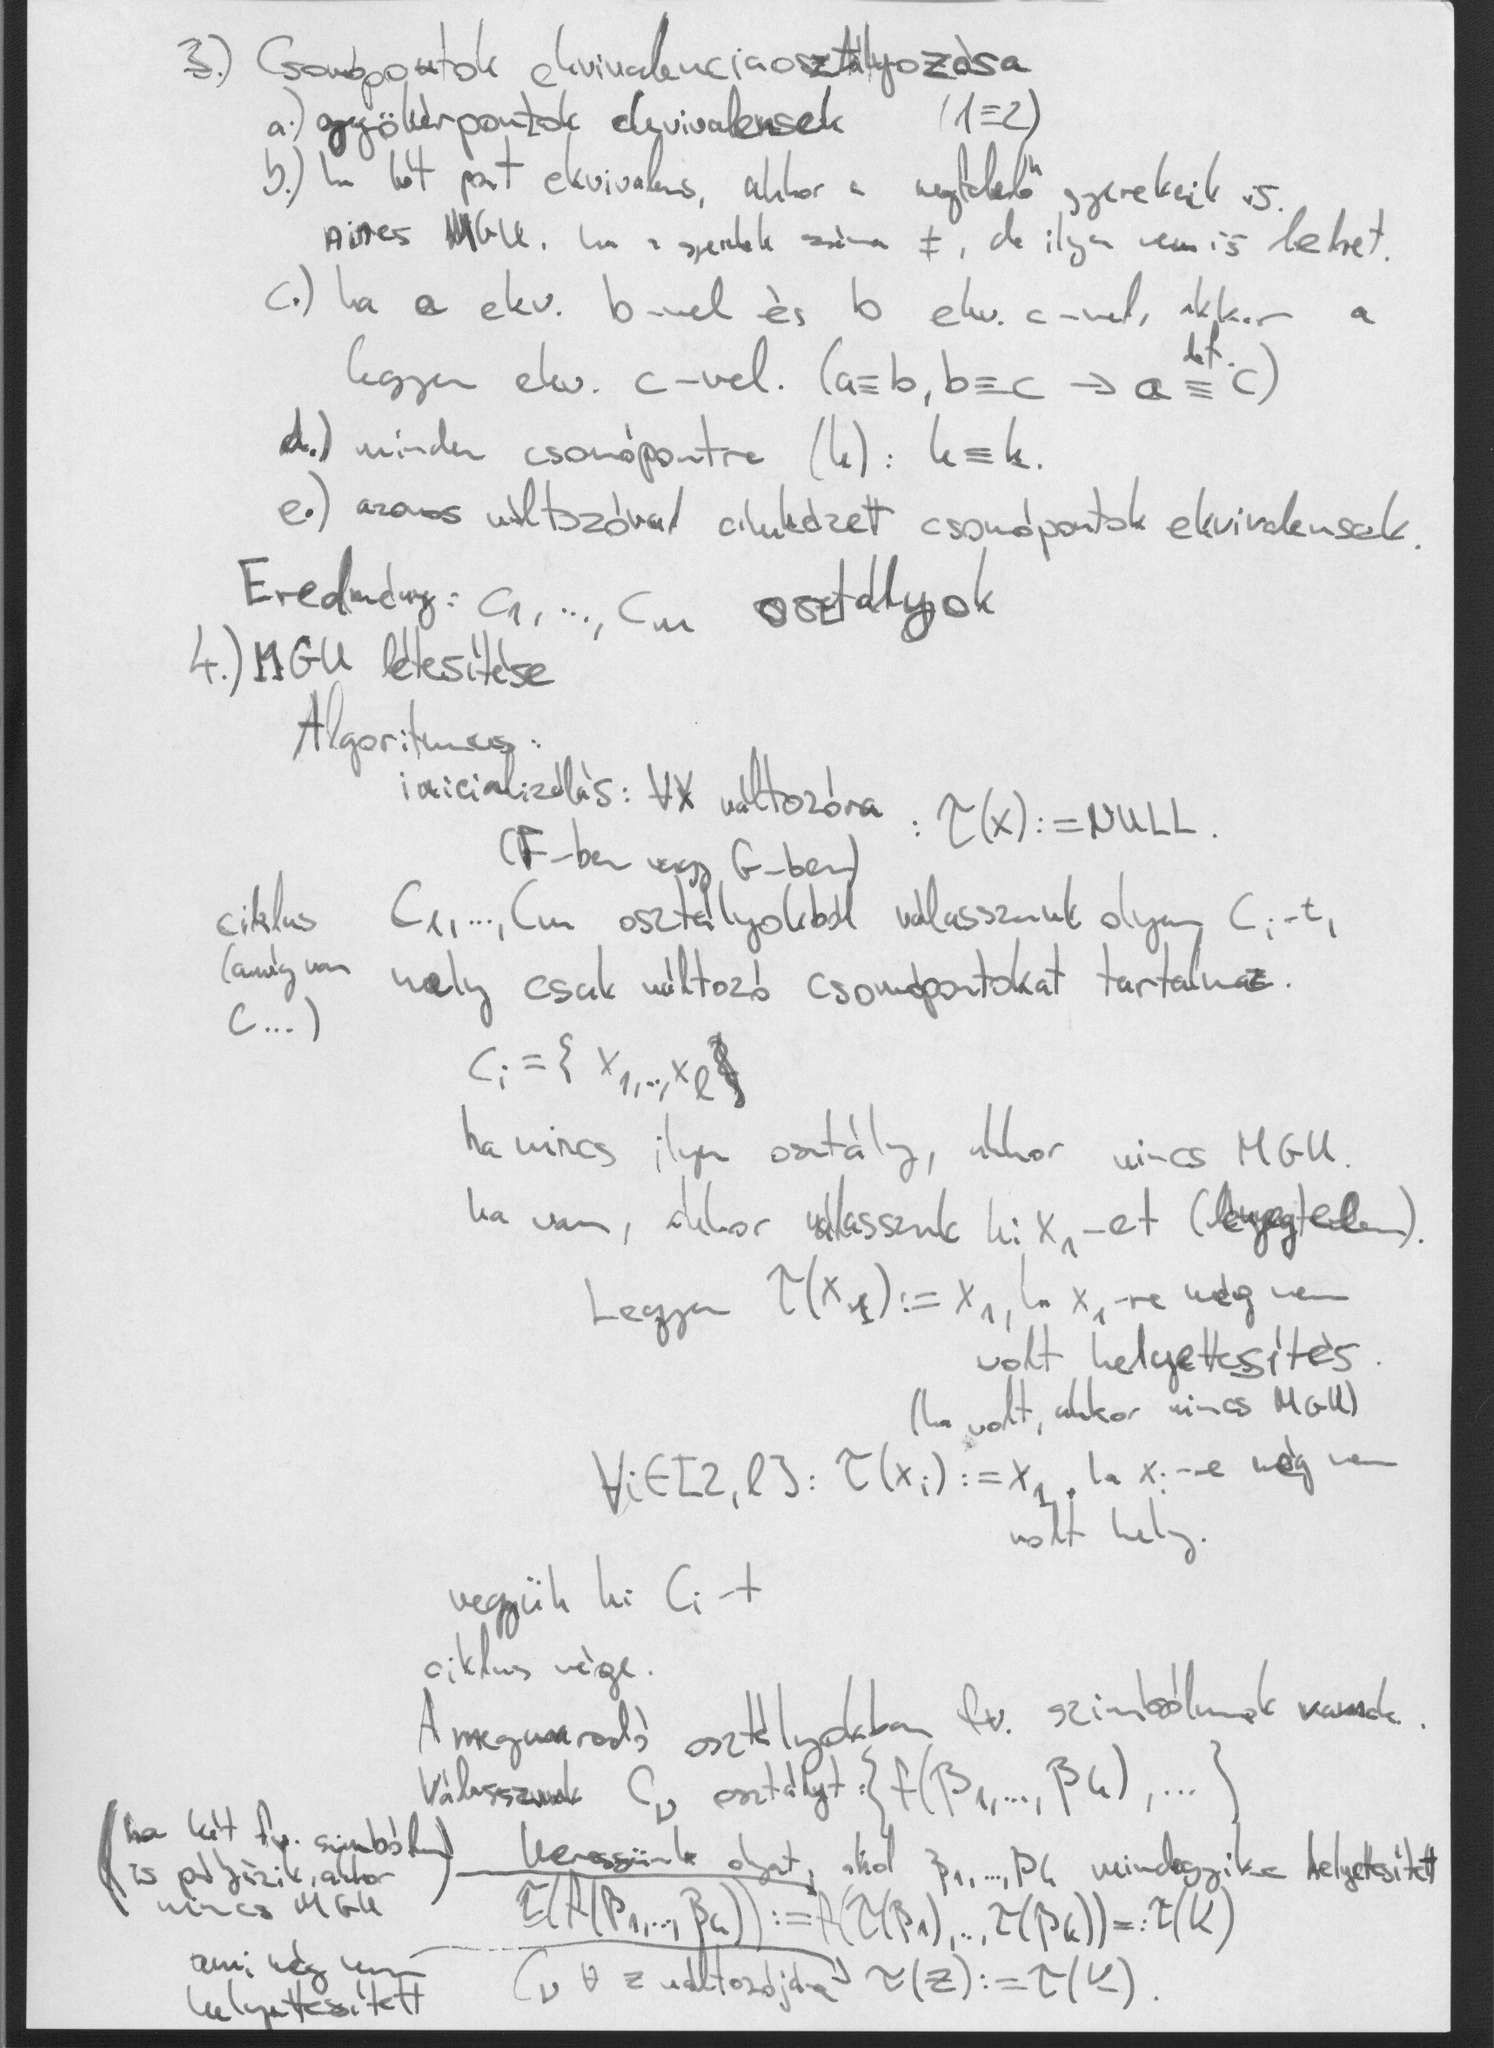 3.) Csomópontok ekvivalenciaosztályozása
a.) gyökérpontok ekvivalensek (1≡2)
b.) ha két pont ekvivalens, akkor a megfelelő gyerekeik is.
nincs MGU, ha a gyerekek száma ≠, de ilyen nem is lehet.
c.) ha a ekv. b-vel és b ekv. c-vel, akkor a
legyen ekv. c-vel. (a≡b, b≡c → a ≡ c) def.
d.) minden csomópontra (k): k≡k.
e.) azonos változóval címkézett csomópontok ekvivalensek.
Eredmény: C₁, ..., Cₘ osztályok
4.) MGU létesítése
Algoritmus:
inicializálás: ∀X változóra : τ(x) := NULL.
(F-ben vagy G-ben)
ciklus C₁, ..., Cₘ osztályokból válasszunk olyan Cᵢ-t,
(amíg van mely csak változó csomópontokat tartalmaz.
C...)
Cᵢ = { x₁, .., xₗ }
ha nincs ilyen osztály, akkor nincs MGU.
ha van, akkor válasszuk ki x₁-et (lényegtelen).
Legyen τ(x₁) := x₁, ha x₁-re még nem
volt helyettesítés.
(ha volt, akkor nincs MGU)
∀i∈[2, l]: τ(xᵢ) := x₁, ha xᵢ-re még nem
volt hely.
vegyük ki Cᵢ-t
ciklus vége.
A megmaradó osztályokban fv. szimbólumok vannak.
Válasszunk Cᵥ osztályt: { f(β₁, ..., βₖ), ... }
(ha két fv. szimbólum
is pályázik, akkor
nincs MGU)
Keressünk olyat, ahol β₁, ..., βₖ mindegyike helyettesített
τ(f(β₁, ..., βₖ)) := f(τ(β₁), .., τ(βₖ)) =: τ(K)
ami még nem
helyettesített
Cᵥ ∀ z változójára τ(z) := τ(K).